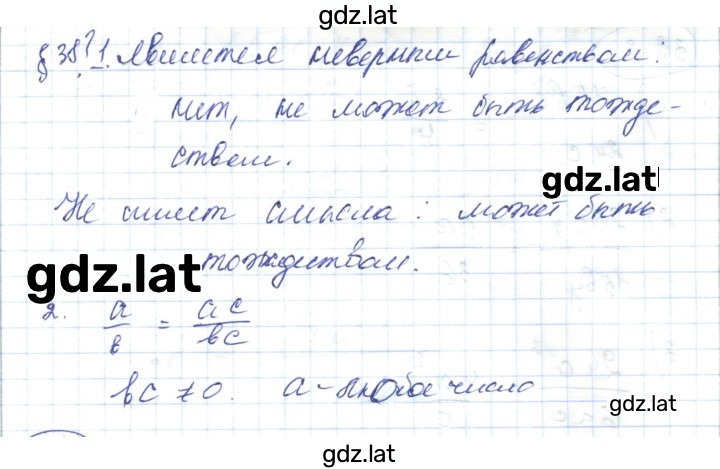 gdz.lat
§ 38? 1. Является неверным равенством:
нет, не может быть тожде-
ством.
gdz.lat
Не имеет смысла: может быть
gdz.lat тождеством.
2. a/в = ac/вc
вc ≠ 0. a - любое число
gdz.lat
gdz.lat